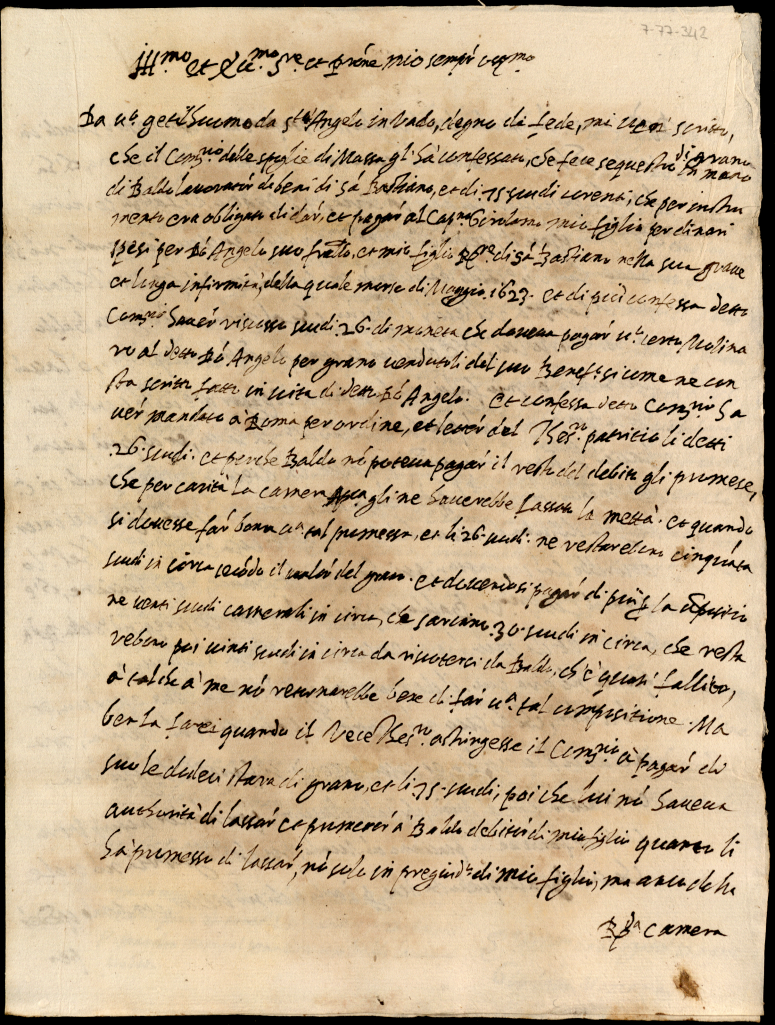 7-77-342
Ill.mo et Ecc.mo S.re et P̄rone mio semp̃ oss.mo
Da uº gẽtilhuomo da Stº Angelo in Vado, degno di fede, mi uiẽ scritto,
che il Com.rio delle spoglie di Massa gli hà confessato, che fece sequestro di grano in mano
di Baldo lauoratór de beni di Sã Bastiano, et di .75 scudi corenti, che per instru
mento era obligato di dar, et pagar al Cap.no Girolamo mio figlio per dinari
spesi per Dõ Angelo suo frãllo, et mio figlio di Sã Bastiano nella sua graue
et longa infirmità, della quale morse di Maggio .1623. et di più confessa detto
Com.rio hauer riscosso scudi .26. di moneta che doueua pagar uº certo Molina
ro al detto Dõ Angelo per grano uendutoli del suo Benef.º si come ne con
sta scritto fatto in uita di detto Dõ Angelo. Et confessa detto Com.rio ha
uer mandato à Roma per ordine, et letter del Thes.ro patritio li detti
.26. scudi. et perche Baldo nõ poteua pagar il resto del debito gli promese,
che per carità la camera gli ne hauerebbe lassato la mettà. et quando
si douesse far bona uª tal promessa, et li 26. scudi. ne restarebono cinquãta
scudi in circa secõdo il ualor del grano. et douendosi pagar di più la cõpositio
ne uenti scudi camerali in circa, che sariano .30. scudi in circa, che resta
rebono poi uinti scudi in circa da riscoterci da Baldo, ch'è quasi fallito,
à tal che à me nõ retornarebbe bene di far uª. tal compositione. Ma
ben la farei quando il Vece Thes.ro astringesse il Com.rio à pagar di
suo le dodeci stara di grano, et li .75. scudi, poi che lui nõ haueua
authorità di lassar et prometer à Baldo debitór di mio figlio quanto li
hà promesso di lassar, nõ solo in pregiud.º di mio figlio, ma anco della
R.da Camera